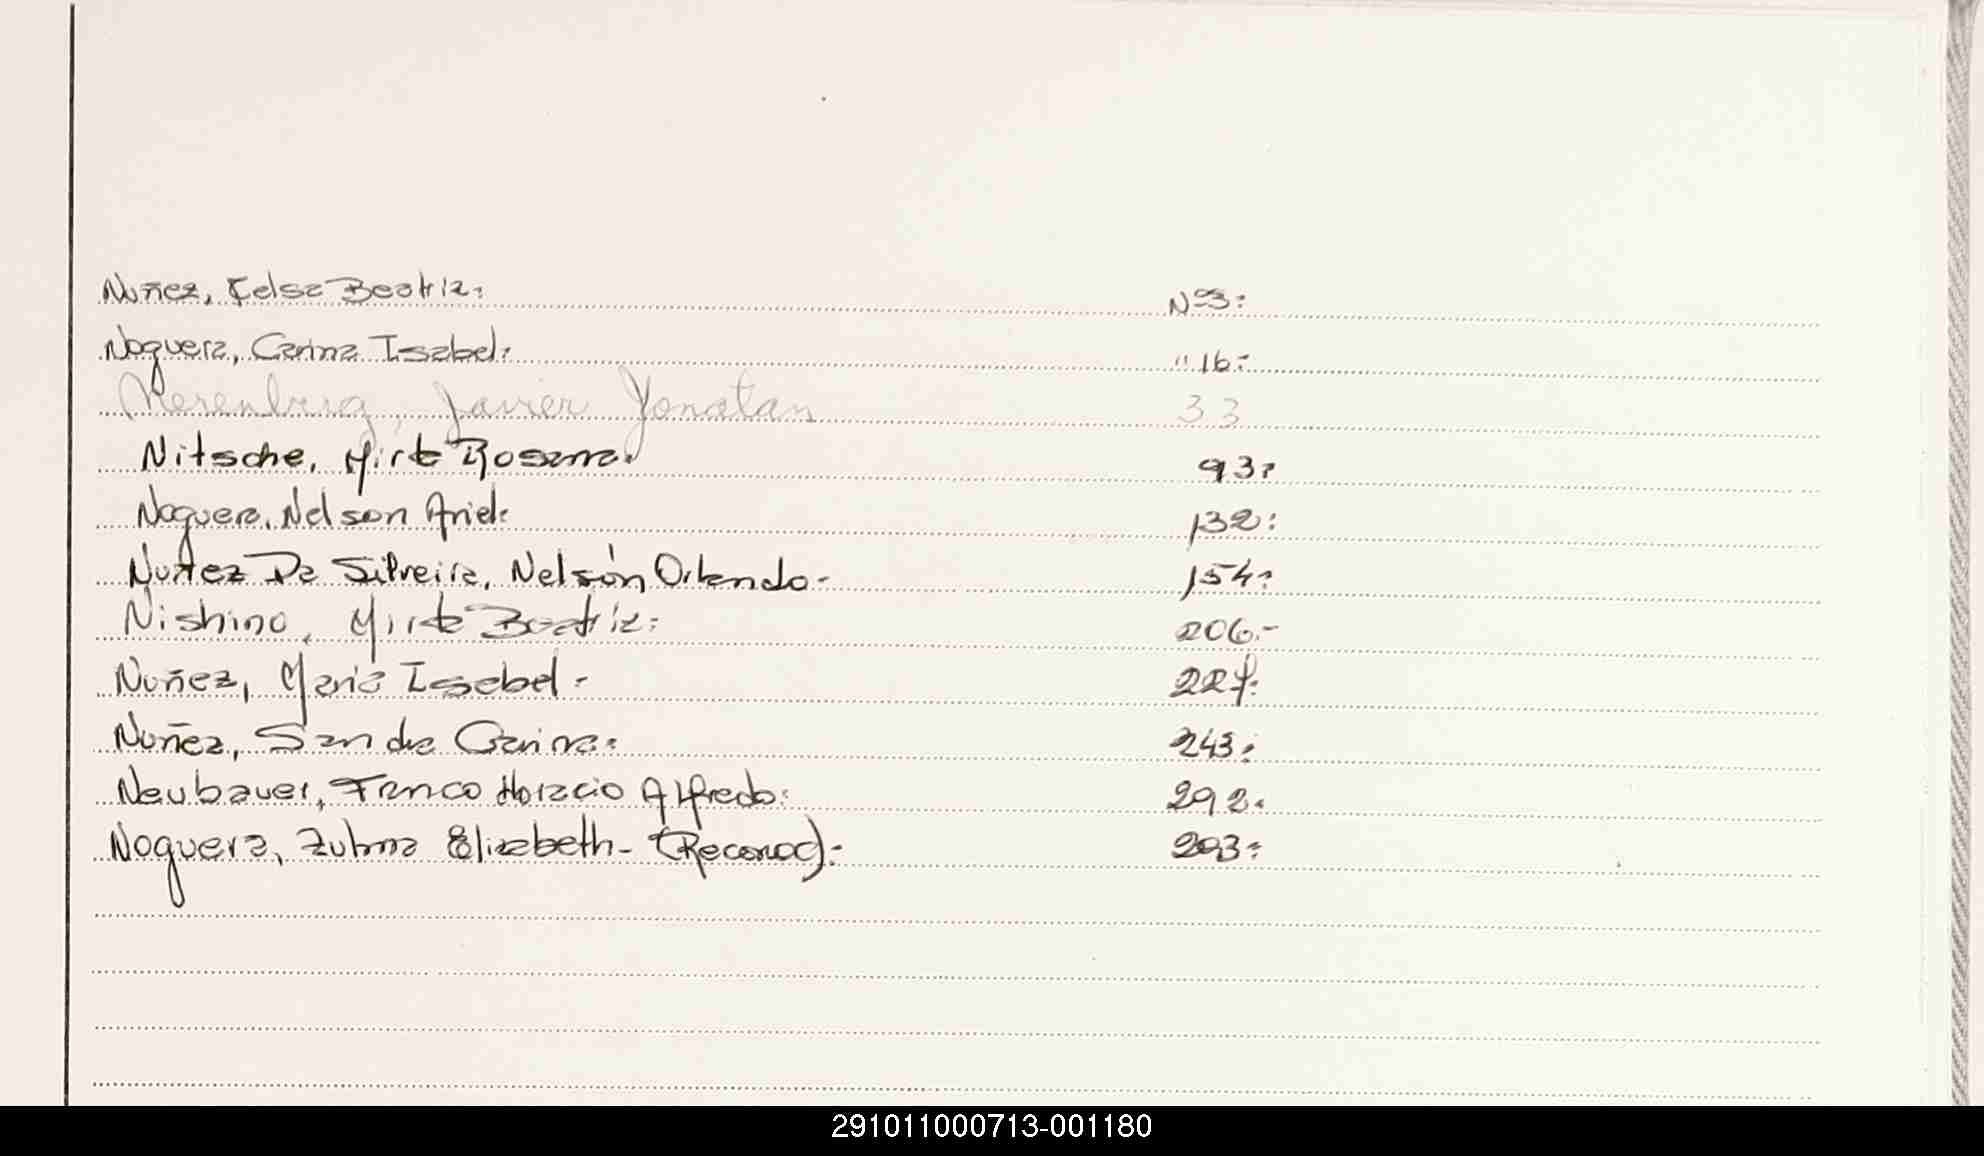 Nuñez, Celsa Beatriz: Nº3:
Noguera, Carina Isabel: " 16:
Nerenberg, Javier Yonatan 33
Nitsche, Mirta Rosana. 93:
Noguera, Nelson Ariel: 132:
Nuñez Da Silveira, Nelsón Orlando- 154:
Nishino, Mirta Beatriz: 206.-
Nuñez, María Isabel- 227:
Nuñez, Sandra Carina: 243:
Neubauer, Franco Horacio Alfredo: 292.
Noguera, Zulma Elizabeth- (Reconoc): 293:
291011000713-001180